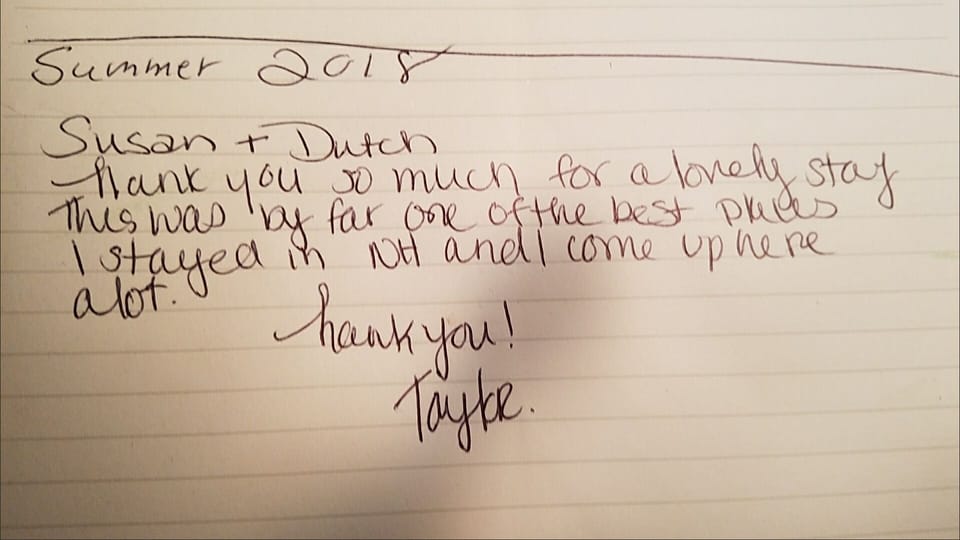 Summer 2018
Susan + Dutch
Thank you so much for a lovely stay
This was by far one of the best places
I stayed in NH and I come up here
alot.
Thank you!